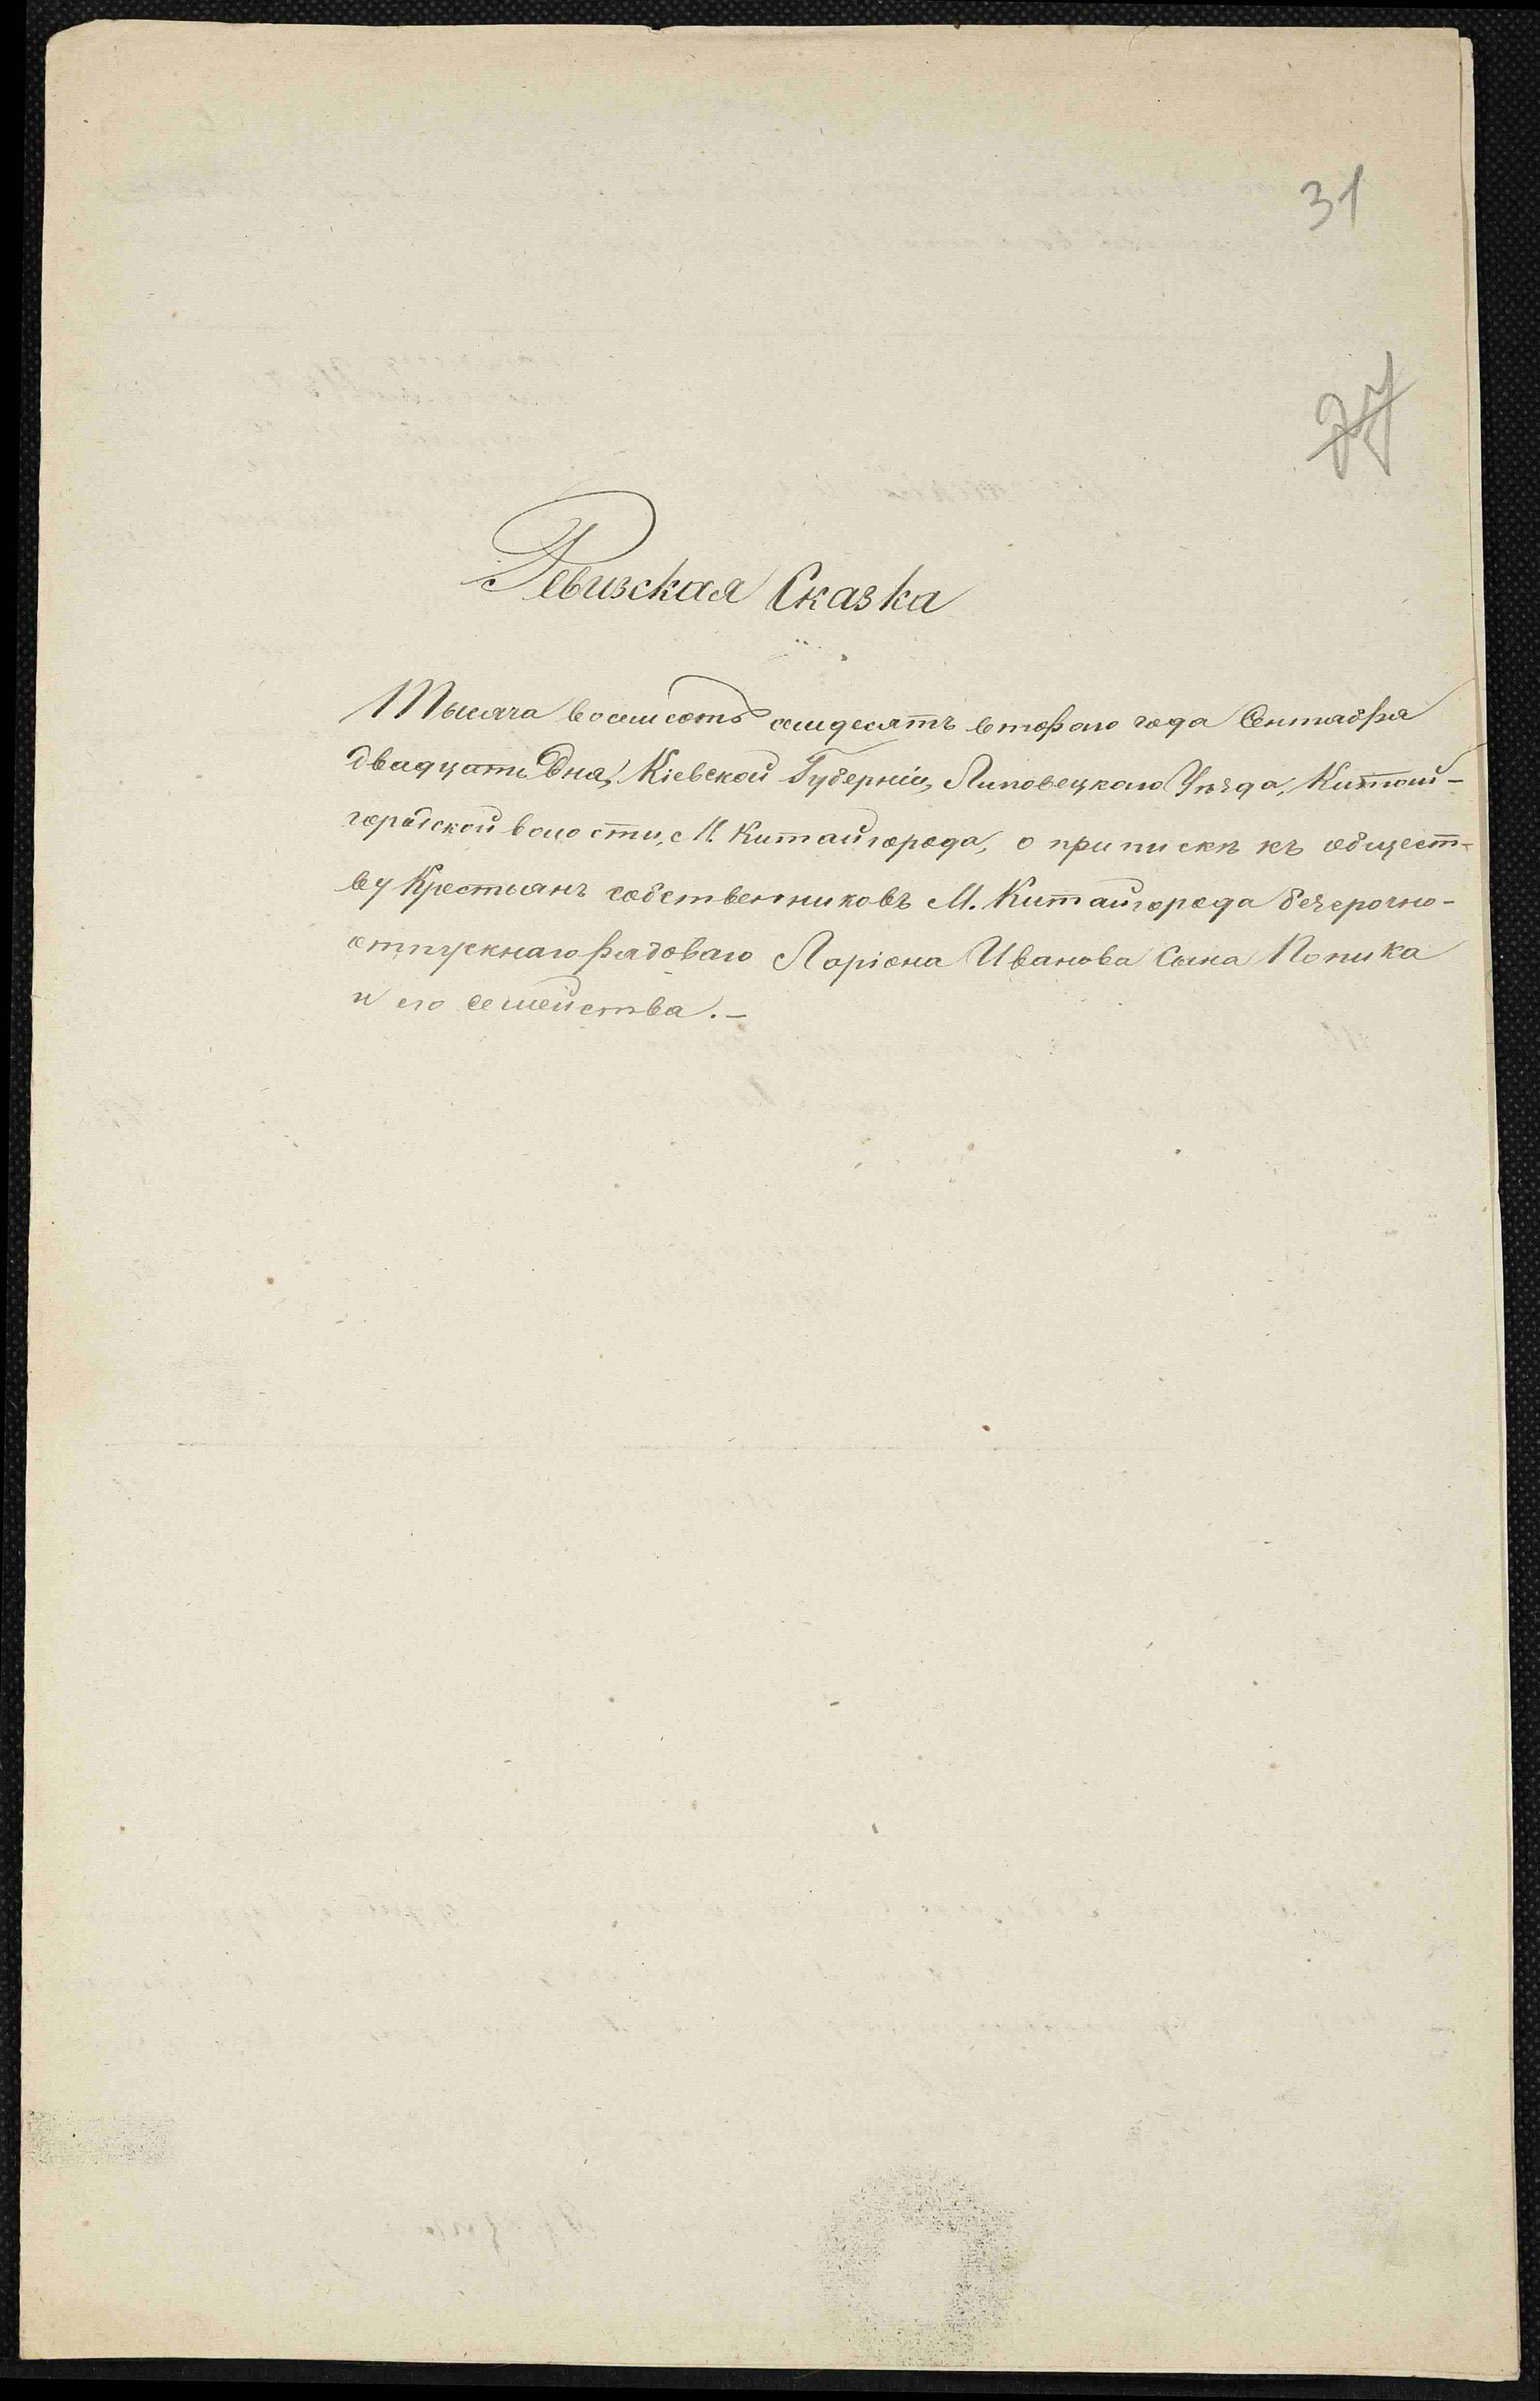 31
27
Ревизская Сказка
Тысяча восемсотъ семдесятъ втораго года Сентября
двадцать дня, Кіевской Губерніи, Липовецкаго Уѣзда, Китай-
городской волости, М. Китайгорода, о припискѣ къ общест-
ву Крестьянъ собственниковъ М. Китайгорода безсрочно-
отпускнаго рядоваго Ларіона Иванова Сына Попика
и его семейства.–